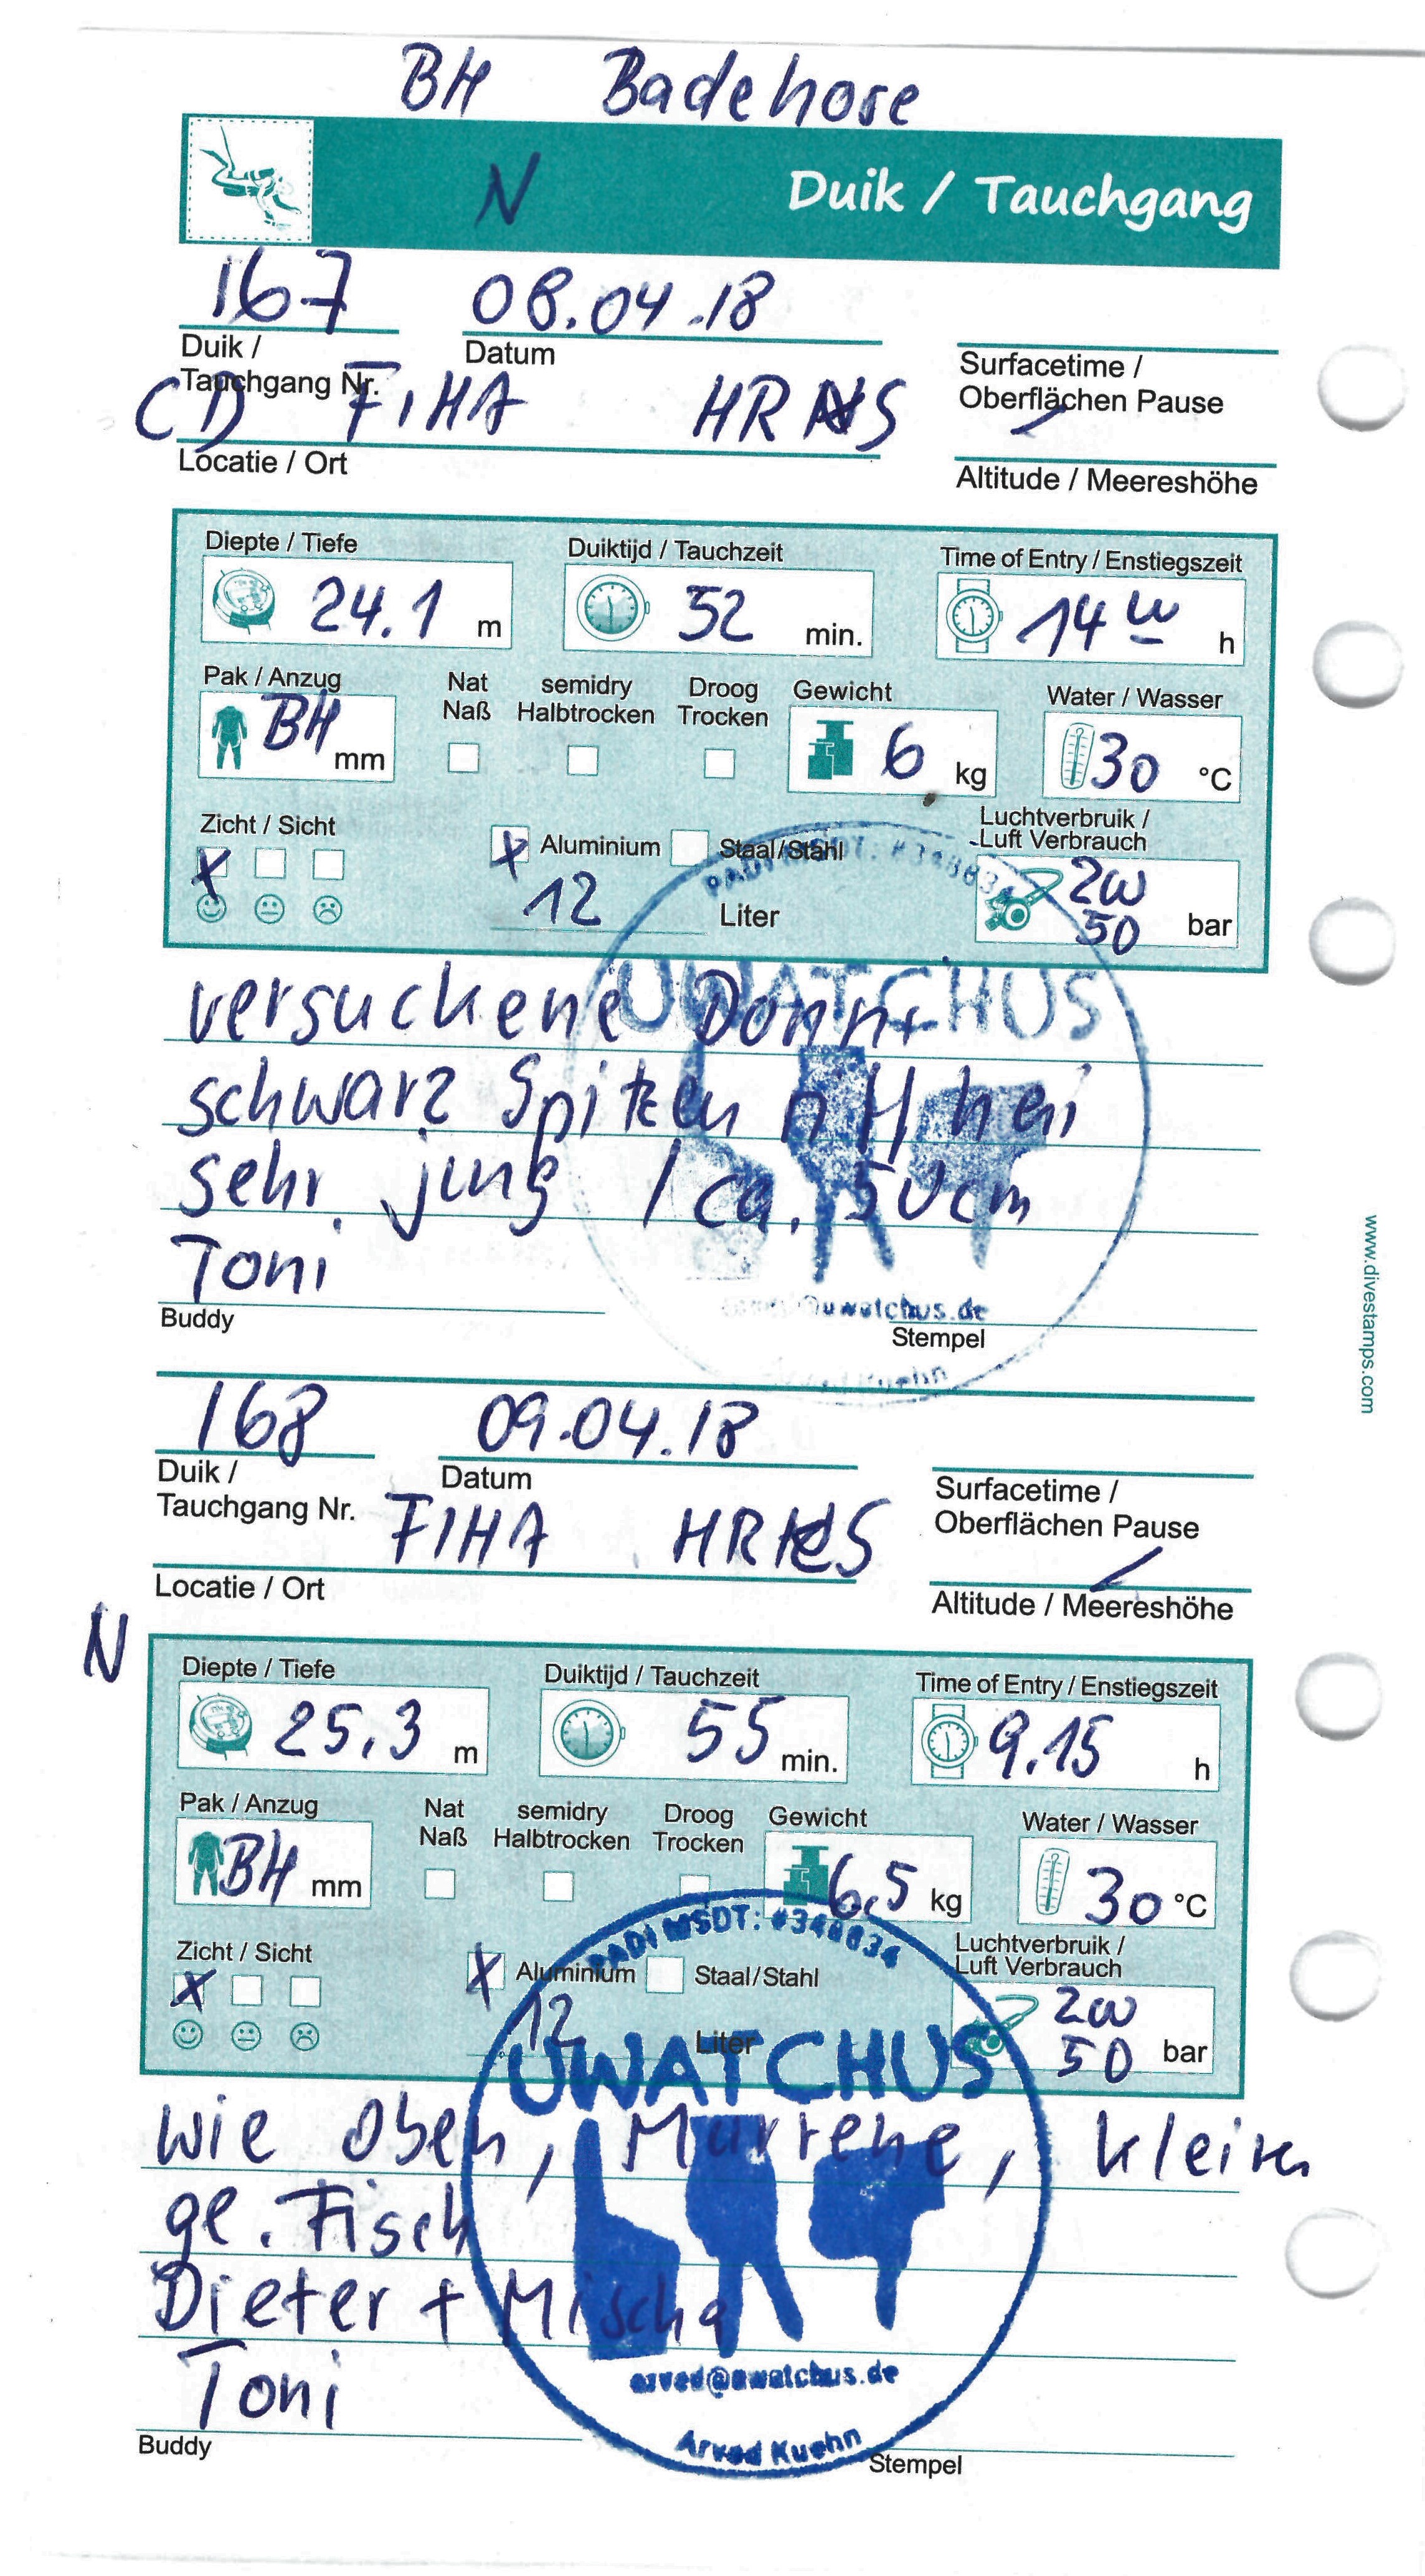 BH Badehose
N
Duik / Tauchgang
167 08.04.18
Duik / Datum
Tauchgang Nr.
Surfacetime /
Oberflächen Pause
CD FIHA HR NS
Locatie / Ort
Altitude / Meereshöhe
Diepte / Tiefe Duiktijd / Tauchzeit Time of Entry / Enstiegszeit
24.1 m 52 min. 14 00 h
Pak / Anzug Nat semidry Droog Gewicht Water / Wasser
Naß Halbtrocken Trocken
BH mm 6 kg 30 °C
Zicht / Sicht X Aluminium Staal/Stahl Luchtverbruik /
Luft Verbrauch
X 12 Liter 200
50 bar
PADI MSDT: #348834
UWATCHUS
schwarz Spitzen riff hai
sehr jung / ca. 50cm
Toni
Buddy
@uwatchus.de
Stempel
Kuehn
www.divestamps.com
168 09.04.18
Duik / Datum
Tauchgang Nr.
Surfacetime /
Oberflächen Pause
FIHA
Locatie / Ort
Altitude / Meereshöhe
N
Diepte / Tiefe Duiktijd / Tauchzeit Time of Entry / Enstiegszeit
25,3 m 55 min. 9.15 h
Pak / Anzug Nat semidry Droog Gewicht Water / Wasser
Naß Halbtrocken Trocken
BH mm 6,5 kg 30 °C
PADI MSDT: #348834
Zicht / Sicht X Aluminium Staal/Stahl Luchtverbruik /
Luft Verbrauch
X 12 Liter 200
50 bar
UWATCHUS
wie oben, Murrene, kleiner
ge. Fisch
Dieter + Mischa
Toni
arved@uwatchus.de
Arved Kuehn
Buddy
Stempel